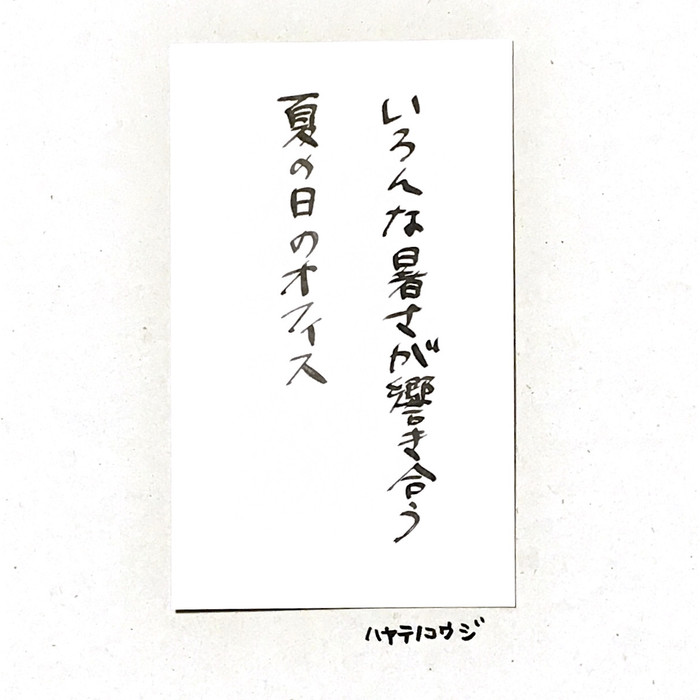 いろんな暑さが響き合う
夏の日のオフィス
ハヤテノコウジ